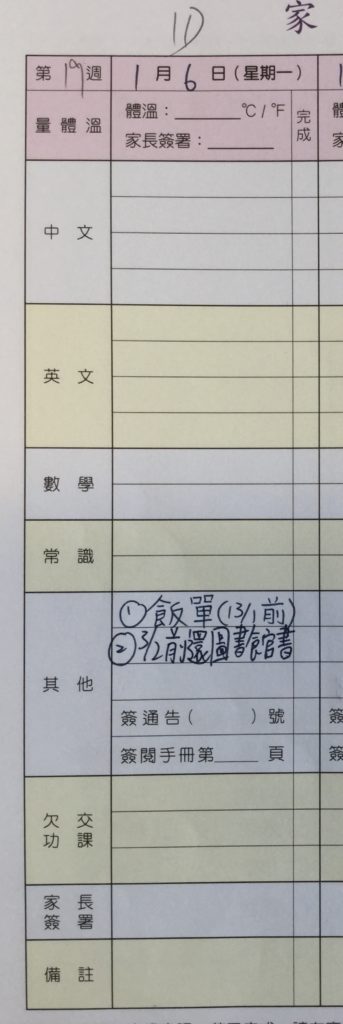 11
家
第19週
1月6日(星期一)
1
量體溫
體溫:______℃/℉
家長簽署:______
完成
中文
英文
數學
常識
其他
①飯單(13/1前)
②3/2前還圖書館書
簽通告( )號
簽閱手冊第____頁
欠交功課
家長簽署
備註